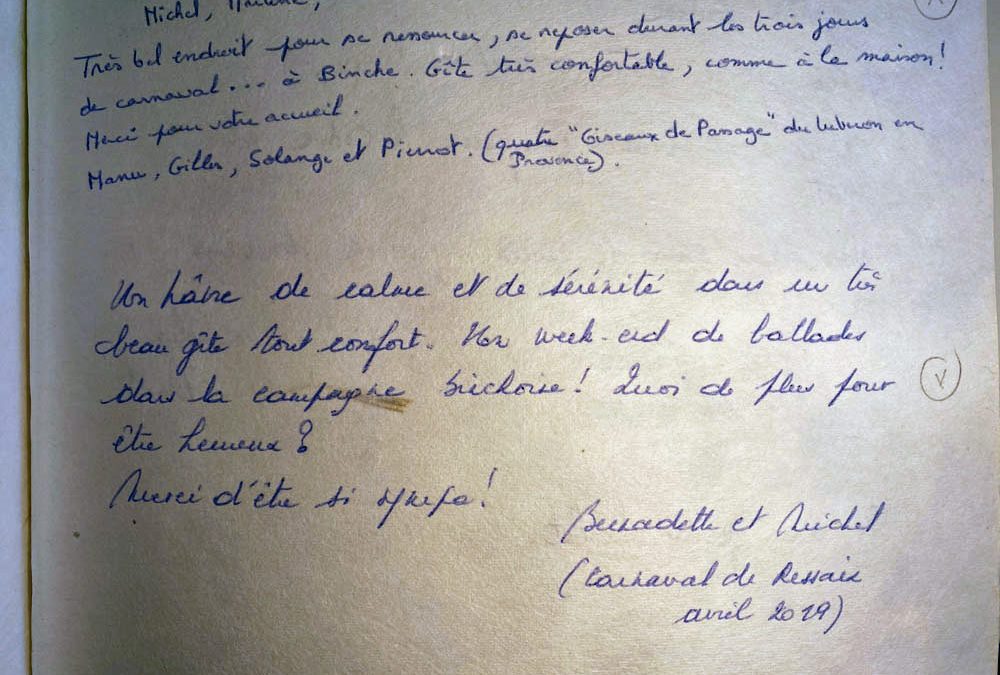 Michel, Marlène,
Très bel endroit pour se ressourcer, se reposer durant les trois jours
de carnaval... à Binche. Gîte très confortable, comme à la maison!
Merci pour votre accueil.
Manu, Gilles, Solange et Pierrot. (quatre "Oiseaux de Passage" du Luberon en
Provence).
Un hâvre de calme et de sérénité dans un très
beau gîte tout confort. Un week-end de ballades
dans la campagne binchoise! Quoi de plus pour
V
être heureux?
Merci d'être si sympa!
Bernadette et Michel
(Carnaval de Ressaix
avril 2019)